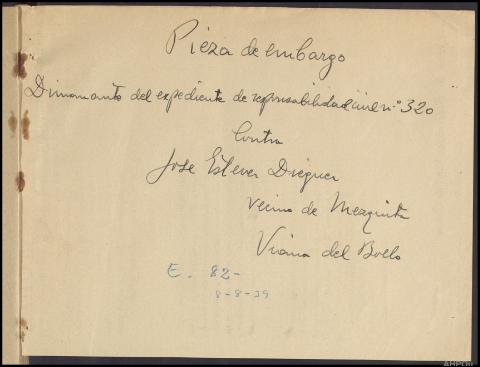 Pieza de embargo
Dimananto del expediente de responsabilidad civil nº 320
Contra
Jose Estever Dieguer
Vecino de Mezquita
Viana del Bollo
E. 82-
8-8-39